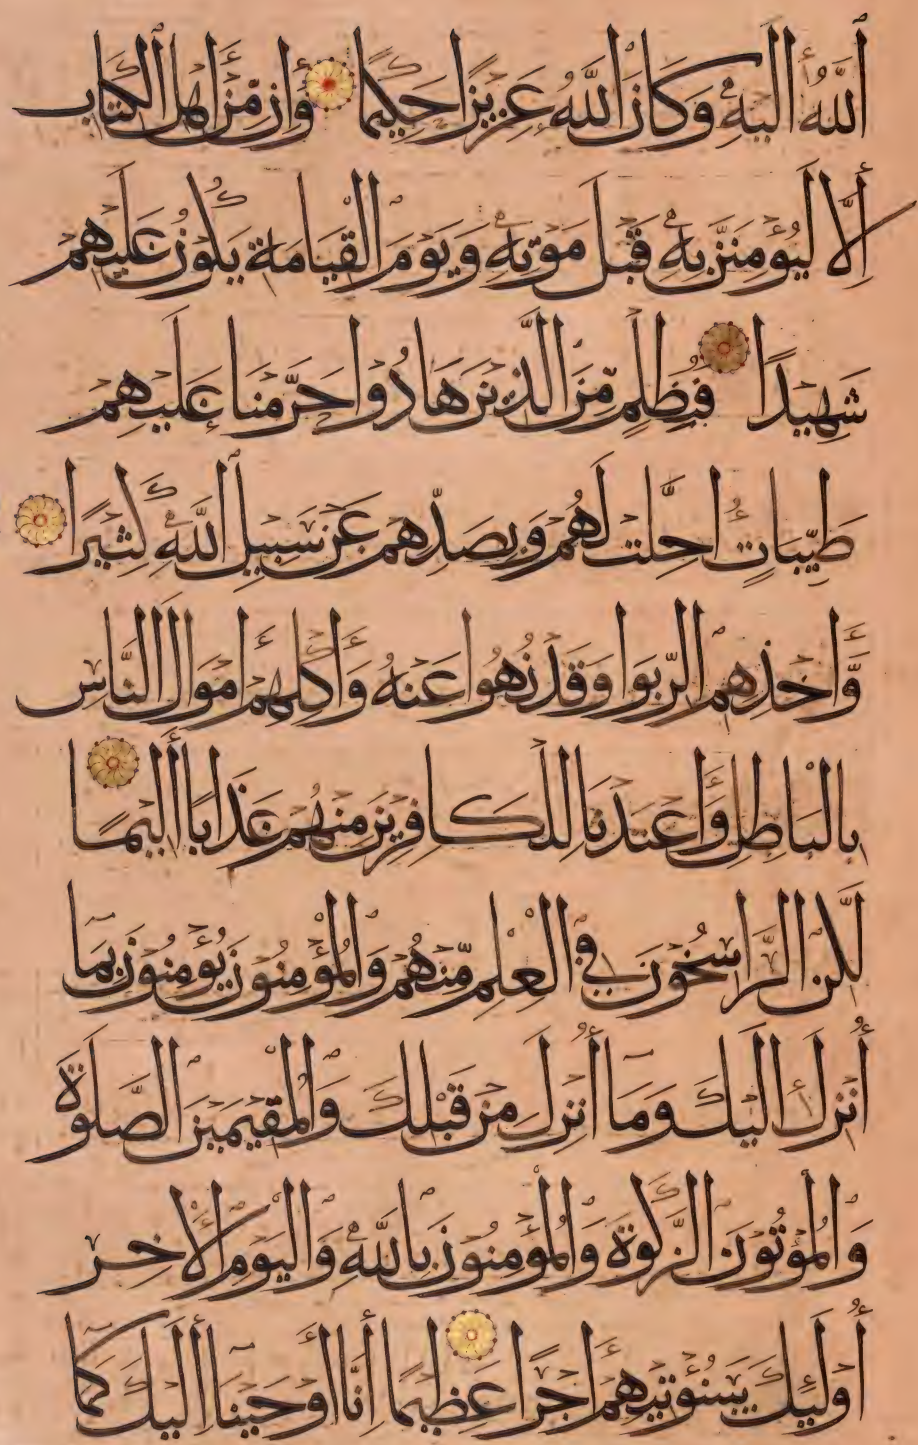 ٱللَّهُ إِلَيْهِ وَكَانَ ٱللَّهُ عَزِيزًا حَكِيمًا وَإِن مِّنْ أَهْلِ ٱلْكِتَابِ
إِلَّا لَيُؤْمِنَنَّ بِهِ قَبْلَ مَوْتِهِ وَيَوْمَ الْقِيَامَةِ يَكُونُ عَلَيْهِمْ
شَهِيدًا فَبِظُلْمٍ مِّنَ الَّذِينَ هَادُوا حَرَّمْنَا عَلَيْهِمْ
طَيِّبَاتٍ أُحِلَّتْ لَهُمْ وَبِصَدِّهِمْ عَن سَبِيلِ ٱللَّهِ كَثِيرًا
وَّأَخْذِهِمُ الرِّبَوا وَقَدْ نُهُوا عَنْهُ وَأَكْلِهِمْ أَمْوَالَ النَّاسِ
بِالْبَاطِلِ وَأَعْتَدْنَا لِلْكَافِرِينَ مِنْهُمْ عَذَابًا أَلِيمًا
لَّكِنِ الرَّاسِخُونَ فِي الْعِلْمِ مِنْهُمْ وَالْمُؤْمِنُونَ يُؤْمِنُونَ بِمَا
أُنزِلَ إِلَيْكَ وَمَا أُنزِلَ مِن قَبْلِكَ وَالْمُقِيمِينَ الصَّلَوةَ
وَالْمُؤْتُونَ الزَّكَوةَ وَالْمُؤْمِنُونَ بِاللَّهِ وَالْيَوْمِ الْآخِرِ
أُولَئِكَ سَنُؤْتِيهِمْ أَجْرًا عَظِيمًا إِنَّا أَوْحَيْنَا إِلَيْكَ كَمَا